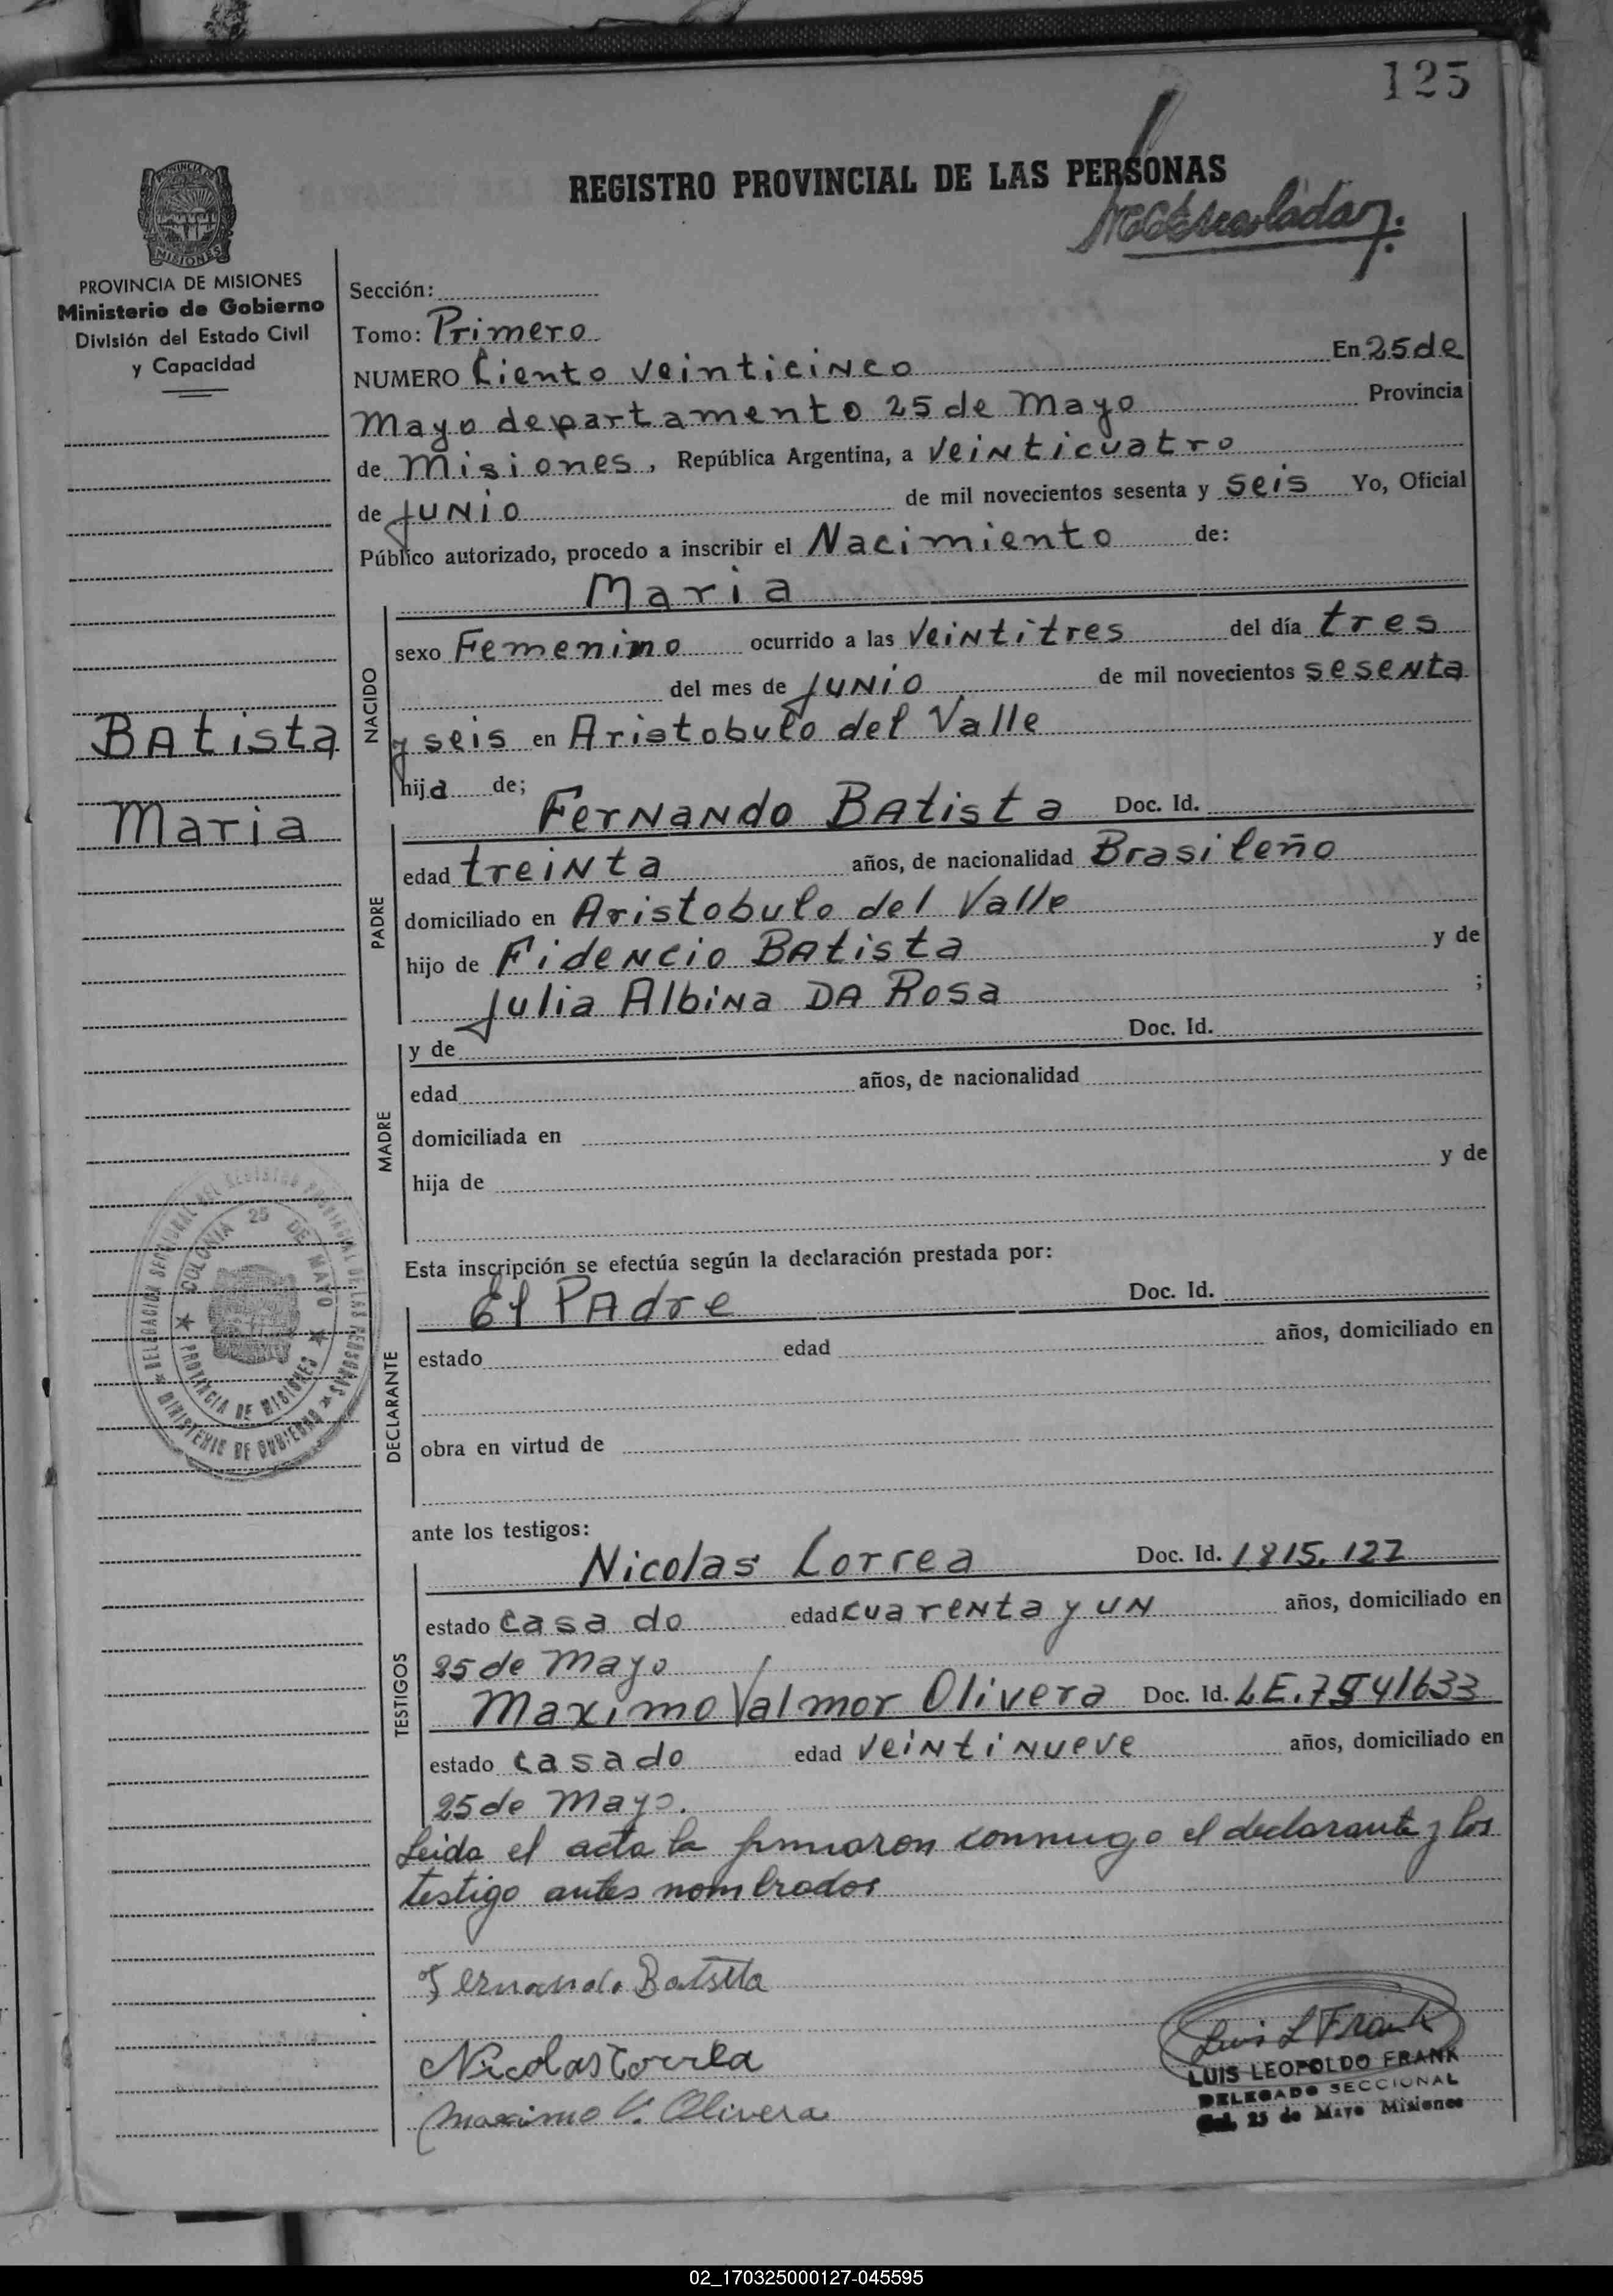 125
REGISTRO PROVINCIAL DE LAS PERSONAS
PROVINCIA DE
MISIONES
PROVINCIA DE MISIONES
Ministerio de Gobierno
División del Estado Civil
y Capacidad
Sección:
Tomo: Primero
NUMERO Ciento veinticinco En 25 de
Mayo departamento 25 de Mayo Provincia
de Misiones, República Argentina, a veinticuatro
de Junio de mil novecientos sesenta y seis Yo, Oficial
Público autorizado, procedo a inscribir el Nacimiento de:
Maria
NACIDO
sexo Femenimo ocurrido a las veintitres del día tres
del mes de Junio de mil novecientos sesenta
y seis en Aristobulo del Valle
hija de;
Batista
Maria
Fernando Batista Doc. Id.
PADRE
edad treinta años, de nacionalidad Brasileño
domiciliado en Aristobulo del Valle
hijo de Fidencio Batista y de
Julia Albina DA Rosa ;
y de Doc. Id.
MADRE
edad años, de nacionalidad
domiciliada en
hija de y de
Esta inscripción se efectúa según la declaración prestada por:
El Padre Doc. Id.
DECLARANTE
estado edad años, domiciliado en
obra en virtud de
DELEGACION SECCIONAL DEL REGISTRO PROVINCIAL DE LAS PERSONAS
COLONIA 25 DE MAYO
PROVINCIA DE MISIONES
MINISTERIO DE GOBIERNO
ante los testigos:
Nicolas Correa Doc. Id. 1815.127
TESTIGOS
estado casado edad cuarenta y un años, domiciliado en
25 de Mayo
Maximo Valmor Olivera Doc. Id. LE.7541633
estado casado edad veintinueve años, domiciliado en
25 de Mayo.
Leida el acta la firmaron conmigo el declarante y los
testigo antes nombrados
Fernando Batista
Nicolas Correa
Maximo V. Olivera
Luis L Frank
LUIS LEOPOLDO FRANK
DELEGADO SECCIONAL
Col. 25 de Mayo Misiones
02_170325000127-045595